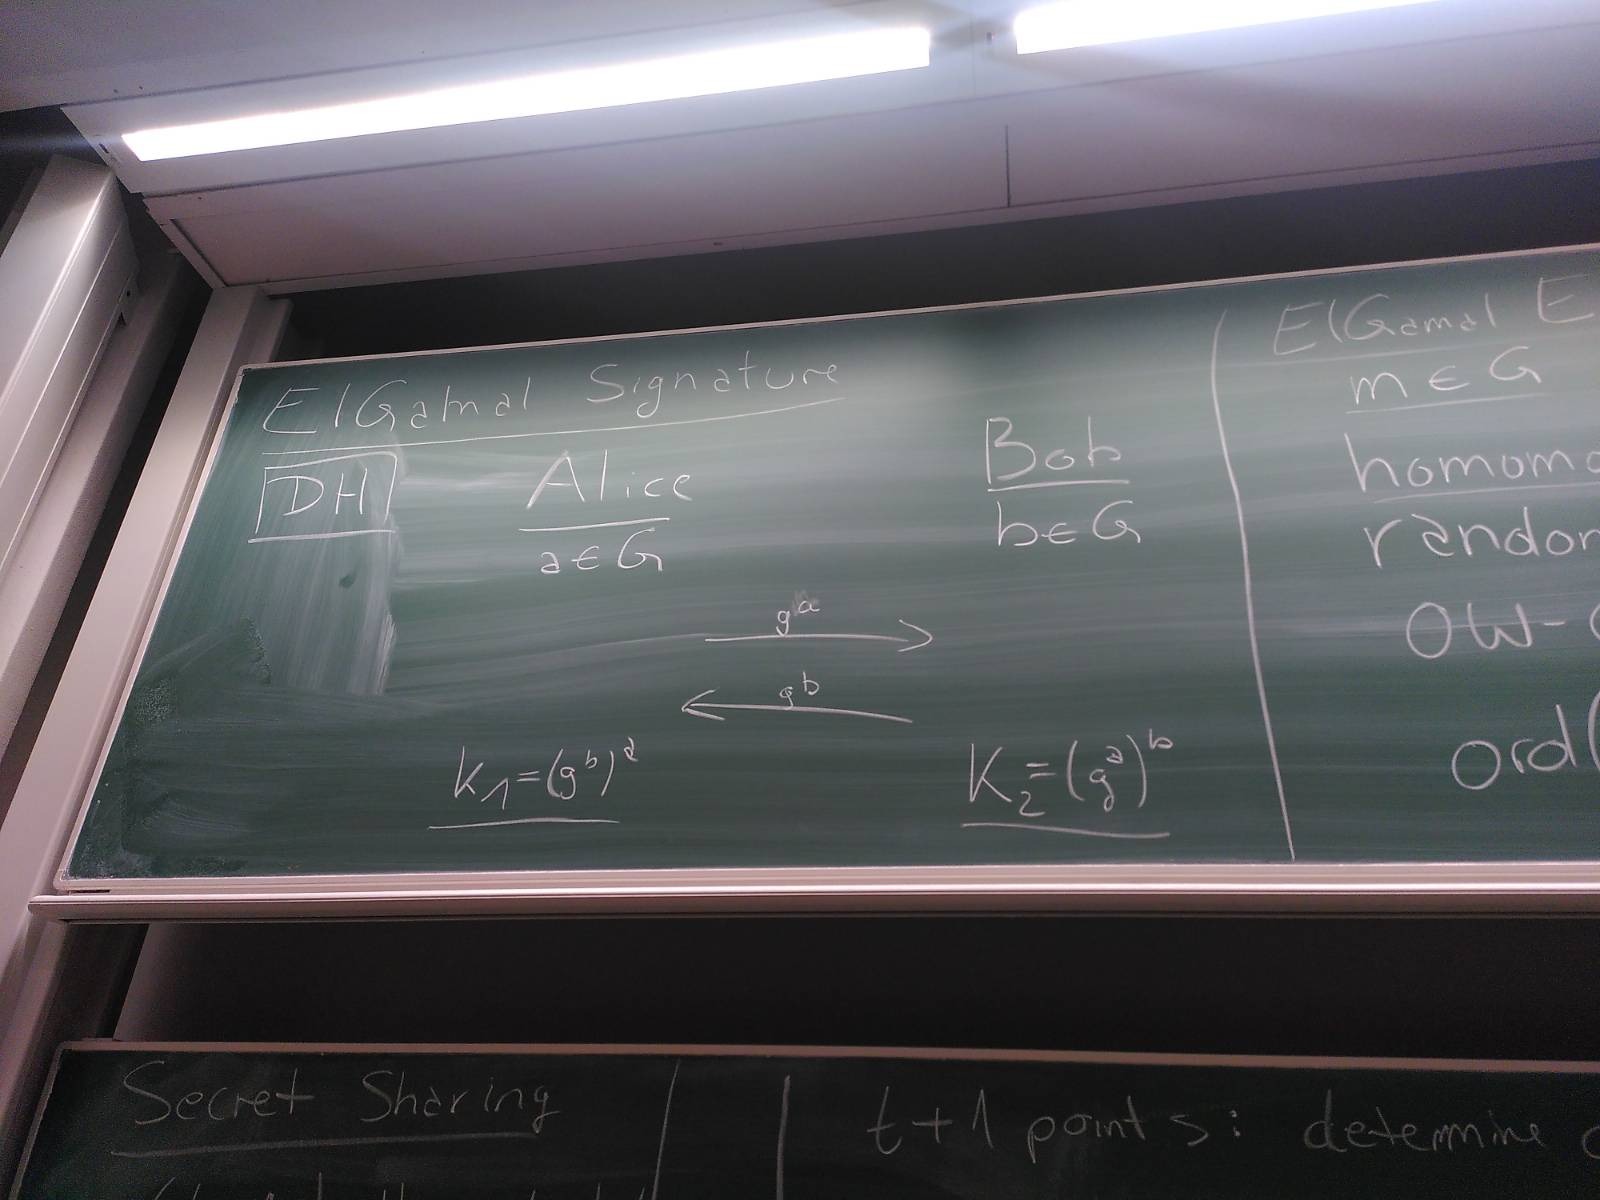 ElGamal Signature
DH Alice Bob
a ∈ G b ∈ G
g^a
g^b
K_1 = (g^b)^a K_2 = (g^a)^b
ElGamal E
m ∈ G
homomo
random
OW-
ord(
Secret Sharing
t+1 points: determine